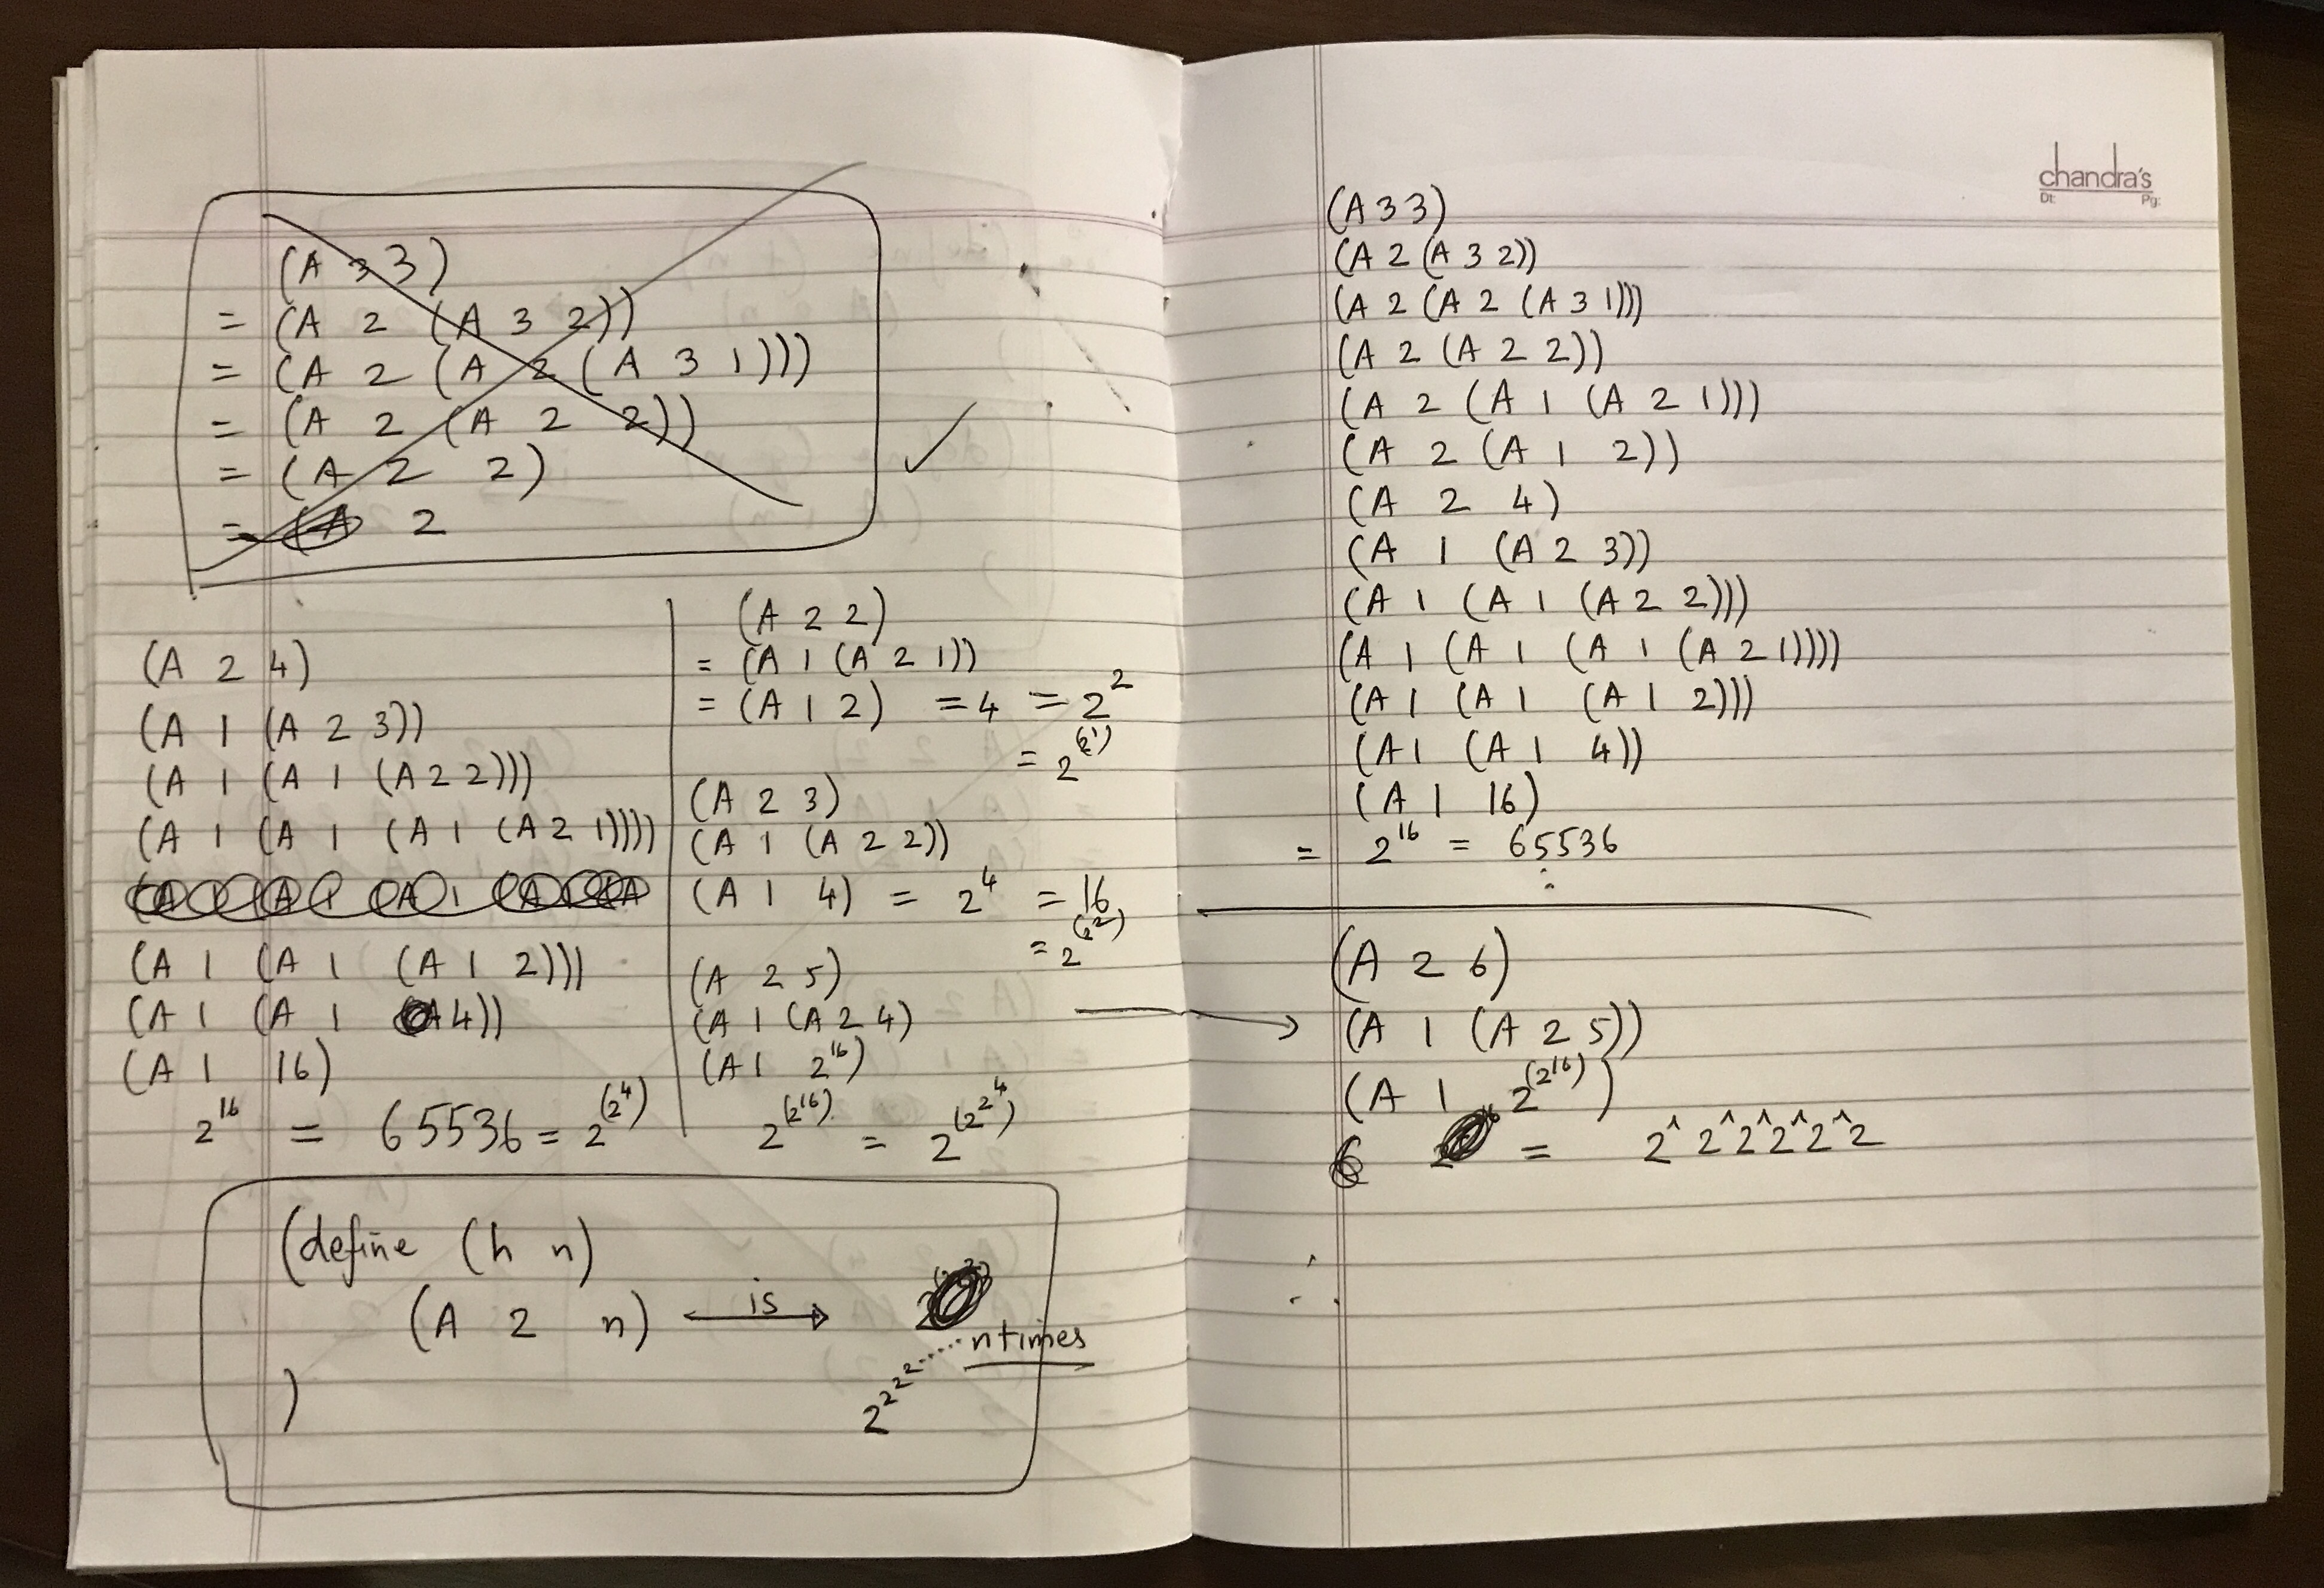 (A 3 3)
= (A 2 (A 3 2))
= (A 2 (A 2 (A 3 1)))
= (A 2 (A 2 2))
= (A 2 2)
= (A 2
(A 2 4)
(A 1 (A 2 3))
(A 1 (A 1 (A 2 2)))
(A 1 (A 1 (A 1 (A 2 1))))
(A 1 (A 1 (A 1 2)))
(A 1 (A 1 4))
(A 1 16)
2^16 = 65536 = 2^(2^4)
(A 2 2)
= (A 1 (A 2 1))
= (A 1 2) = 4 = 2^2
= 2^(2^1)
(A 2 3)
(A 1 (A 2 2))
(A 1 4) = 2^4 = 16
= 2^(2^2)
(A 2 5)
(A 1 (A 2 4)
(A 1 2^16)
2^(2^16) = 2^(2^2^4)
(define (h n)
(A 2 n) is
n times
2^2^2^2^2.....
)
chandra's
Dt: Pg:
(A 3 3)
(A 2 (A 3 2))
(A 2 (A 2 (A 3 1)))
(A 2 (A 2 2))
(A 2 (A 1 (A 2 1)))
(A 2 (A 1 2))
(A 2 4)
(A 1 (A 2 3))
(A 1 (A 1 (A 2 2)))
(A 1 (A 1 (A 1 (A 2 1))))
(A 1 (A 1 (A 1 2)))
(A 1 (A 1 4))
(A 1 16)
= 2^16 = 65536
(A 2 6)
(A 1 (A 2 5))
(A 1 2^(2^16))
= 2^2^2^2^2^2